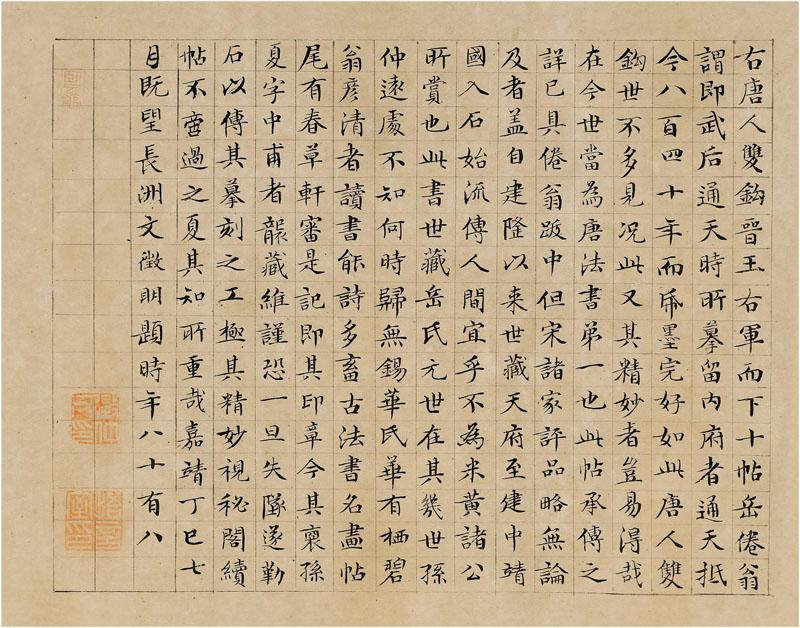 右唐人雙鈎晉王右軍而下十帖岳倦翁
謂即武后通天時所摹留内府者通天抵
今八百四十年而帋墨完好如此唐人雙
鈎世不多見况此又其精妙者豈易淂哉
在今世當為唐法書弟一也此帖承傳之
詳已具倦翁跋中但宋諸家評品略無論
及者盖自建隆以来世藏天府至建中靖
國入石始流傳人間宜乎不為米黄諸公
所賞也此書世藏岳氏元世在其幾世孫
仲遠處不知何時歸無錫華氏華有栖碧
翁彦清者讀書能詩多畜古法書名畫帖
尾有春草軒審是記即其印章今其裔孫
夏字中甫者襲藏維謹恐一旦失墜遂勒
石以傳其摹刻之工極其精妙視秘閣續
帖不啻過之夏其知所重哉嘉靖丁巳七
月既望長洲文徵明題時年八十有八